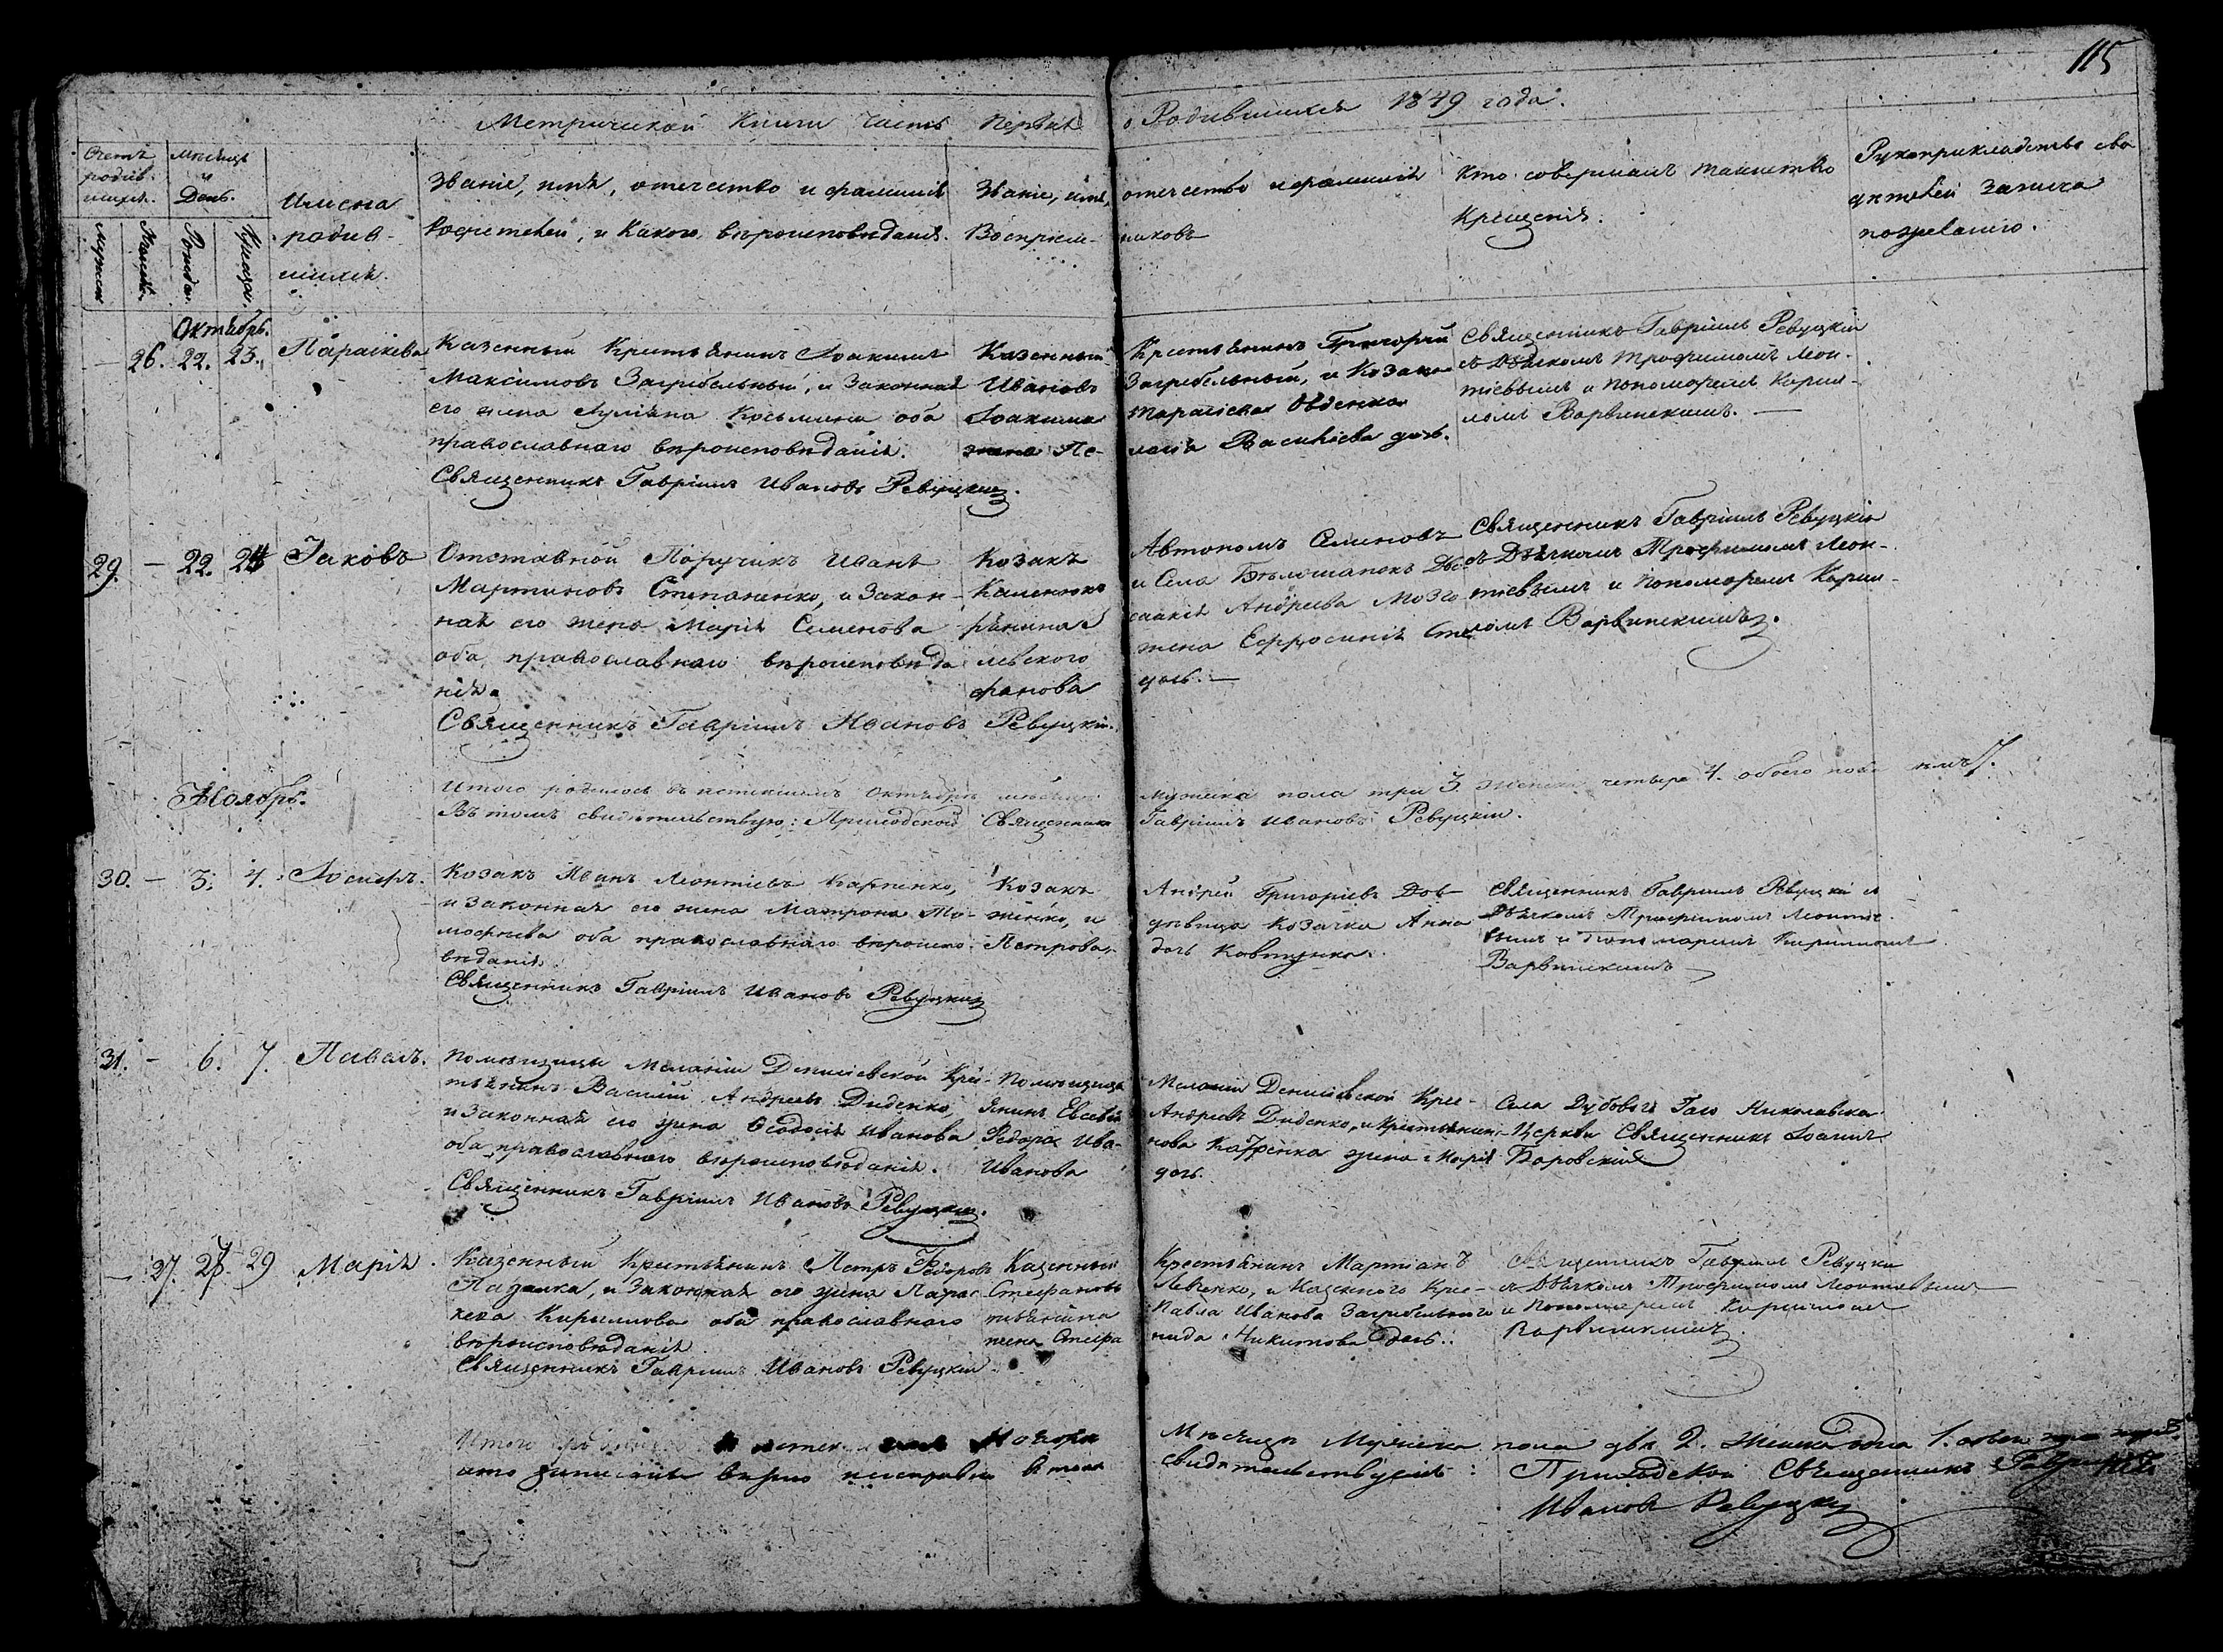 115
Метрической Книги часть Первая о Родившихся 1849 года.
Счетъ родив-шихся.
Мѣсяцъ и День.
Имена родив-шихся.
Званіе, имя, отечество и фамилія
Родителей, и Какого вѣроисповѣданія.
Званіе, имя, отечество и фамилія
Воспріем-никовъ
Кто совершалъ таинство
Крещенія.
Рукоприкладство сви
дѣтелей записа
по желанію.
Октябрь.
— 26. 22. 23. Параскева
Казенный Крестьянинъ Іоакимъ
Максимовъ Загребельный, и Законная
его жена Іуліяна Косьмина оба
православнаго вѣроисповѣданія.
Священникъ Гавріилъ Ивановъ Ревуцкій.
Казенный Крестьянинъ Григорій
Ивановъ Загребельный, и Козака
Іоакима Тарасіева Овденка
жена Пе- Василіева дочь.
Священникъ Гавріилъ Ревуцкій
съ Дьячкомъ Трофимомъ Леон-
тіевымъ и пономаремъ Кирил-
ломъ Варвинскимъ. —
29. — 22. 24 Іаковъ
Отставной Поручикъ Иванъ
Мартиновъ Степаненко, и Закон-
ная его жена Марія Семенова
оба православнаго вѣроисповѣда
нія.
Священникъ Гавріилъ Ивановъ Ревуцкій.
Козакъ Автономъ Семеновъ
Каменюка и Села Бѣлошапокъ Дво-
рянина Андреева Мозго
левского жена Ефросинія Сте
фанова дочь. —
Священникъ Гавріилъ Ревуцкій
съ Дьячкомъ Трофимомъ Леон-
тіевымъ и Пономаремъ Кирил-
ломъ Варвинскимъ.
Ноябрь.
Итого родилось въ истекшемъ Октябрѣ мѣсяцѣ мужеска пола три 3. женска четыре 4. обоего пола 7.
Въ томъ свидѣтельствую: Приходской Священникъ Гавріилъ Ивановъ Ревуцкій.
30. — 3. 4. Іосифъ.
Козакъ Иванъ Леонтіевъ Карпенко,
и Законная его жена Матрона Ти-
мофіева оба православнаго вѣроиспо-
вѣданія.
Священникъ Гавріилъ Ивановъ Ревуцкій
Козакъ Андрей Григоріевъ Дов-
женко, и дѣвица Козачка Анна
Петрова дочь Ковтунка.
Священникъ Гавріилъ Ревуцкій съ
Дьячкомъ Трофимомъ Леонтіе-
вымъ и Пономаремъ Кирилломъ
Варвинскимъ
31. — 6. 7. Павелъ.
Помѣщицы Меланіи Денисіевской Крес-
тьянинъ Василій Андреевъ Диденко,
и Законная его жена Ѳеодосія Иванова
оба православнаго вѣроисповѣданія.
Священникъ Гавріилъ Ивановъ Ревуцкій.
Помѣщицы Меланіи Денисіевской Крес-
янинъ Евсевій Андреевъ Диденко, и Крестьянина
Федора Ива-нова жена Марія
Иванова дочь.
Села Дубового Гаю Николаевской
Церкви Священникъ Іоаннъ
Боровскій
— 27. 27. 29 Марія.
Казенный Крестьянинъ Петръ Федоровъ
Падалка, и Законная его жена Парас
кева Кирилова оба православнаго
вѣроисповѣданія.
Священникъ Гавріилъ Ивановъ Ревуцкій
Казенный Крестьянинъ Мартіанъ
Стефановъ Левченко, и Казенного Крес-
тьянина Павла Иванова Загребельного
жена Стефа нида Никитова дочь.
Священникъ Гавріилъ Ревуцкій
съ Дьячкомъ Трофимомъ Леонтіевымъ
и Пономаремъ Кирилломъ
Варвинскимъ.
Итого Ноября Мѣсяцѣ Мужеска пола два 2. Женска одна 1.
свидѣтельствуемъ: Приходской Священникъ Гавріилъ
Ивановъ Ревуцкій